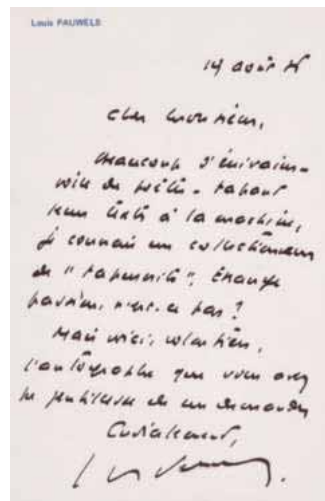 Louis PAUWELS
14 août
Cher Monsieur,
Beaucoup d'écrivains -
de poètes - tapant
leurs textes à la machine,
je connais un collectionneur
de "tapuscrits". Étrange
passion, n'est-ce pas ?
Mais voici, bien,
l'autographe que vous avez
la gentillesse de me demander
Cordialement,